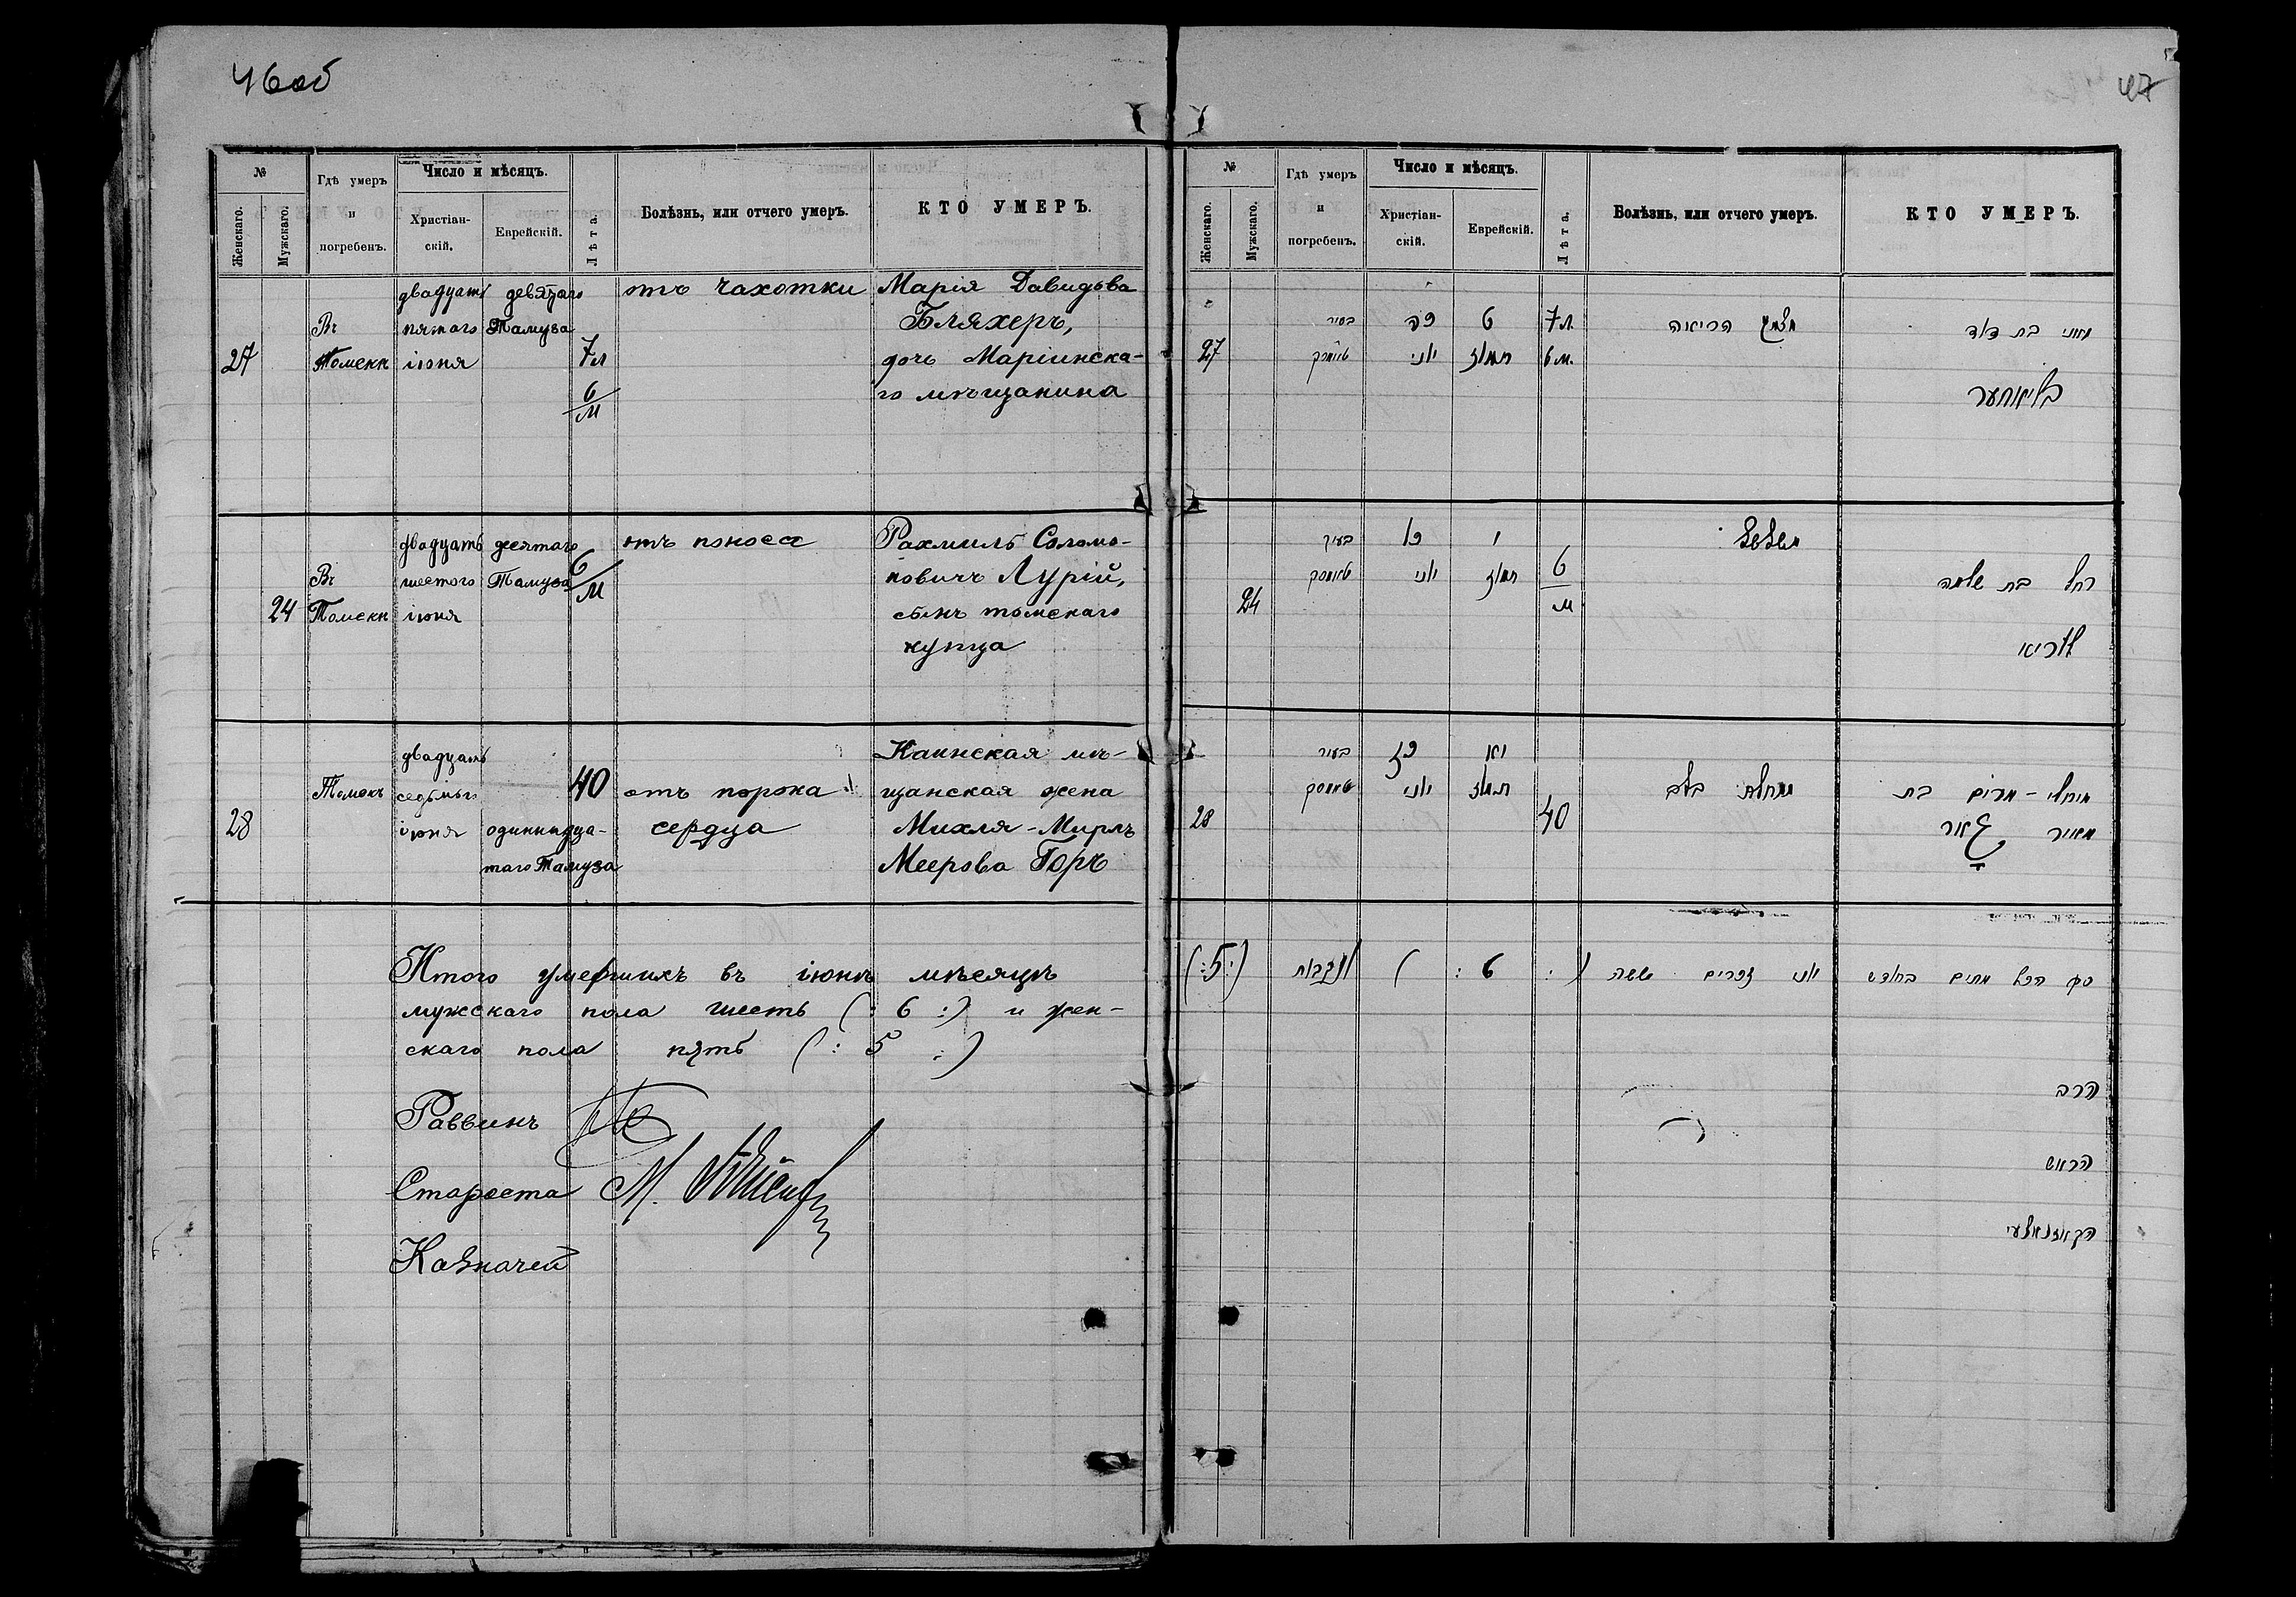 46 об
№
Женскаго.
Мужскаго.
Гдѣ умеръ
и
погребенъ.
Число и мѣсяцъ.
Христіан-
скій.
Еврейскій.
Лѣта.
Болѣзнь, или отчего умеръ.
КТО УМЕРЪ.
27
Въ
Томскѣ
двадцать
пятаго
іюня
девятаго
Тамуза
7 л
6
м
отъ чахотки
Марія Давидова
Бляхеръ,
дочь Маріинска-
го мѣщанина
24
Въ
Томскѣ
двадцать
шестого
іюня
десятаго
Тамуза
6
м
отъ поноса
Рахмиль Соломо-
новичъ Лурій,
сынъ томскаго
купца
28
Томскъ
двадцать
седьмого
іюня
одиннадца-
таго Тамуза
40
отъ порока
сердца
Каинская мѣ-
щанская жена
Михля-Мирль
Меерова Горъ
Итого умершихъ въ іюнѣ мѣсяцѣ
мужскаго пола шесть (: 6 :) и жен-
скаго пола пять (: 5 :)
Раввинъ
Староста М.
Казначей
47
№
Женскаго.
Мужскаго.
Гдѣ умеръ
и
погребенъ.
Число и мѣсяцъ.
Христіан-
скій.
Еврейскій.
Лѣта.
Болѣзнь, или отчего умеръ.
КТО УМЕРЪ.
27
בעיר
טאמסק
כה
יוני
ט
תמוז
7 л.
6 м.
הריאה
בת דוד
בליאכער
24
בעיר
טאמסק
כו
יוני
י
תמוז
6
м
משלשל
רחל בת שלמה
לוריא
28
בעיר
טאמסק
כז
יוני
יא
תמוז
40
מחלת בלב
מיכלי-מרים בת
מאיר גאר
סך הכל מתים בחודש יוני זכרים ששה (: 6 :) ונקבות (:5:)
הרב
הראש
הקאזנאצעי